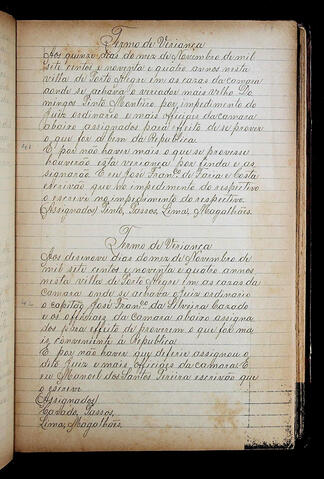 Termo de Veriança
Aos quinze dias do mez de Novembro de mil
sete centos e noventa e quatro annos nesta
villa de Porto Alegre em as cazas da camara
aonde se achava o vereador mais velho Do
mingos Pinto Monteiro por impedimento do
Juiz ordinario e mais officiaes da camara
abaixo assignados para effeito de se prover
o que for a bem da Republica.
E por não haver mais o que se provesse
houverão esta veriança por finda e as
signarão. E eu José Franco. de Faria e Costa
escrivão que no impedimento do respectivo
o escrevi no impedimento do respectivo.
(Assignados) Pinto, Passos, Lima, Magalhães.
Termo de Veriança
Aos desenove dias do mez de Novembro de
mil sete centos e noventa e quatro annos,
nesta villa de Porto Alegre em as cazas da
camara onde se achava o Juiz ordinario
o capitão José Franco. da Silveira Cazado
e os officiaes da camara abaixo assigna
dos para effeito de proverem o que foi ma
is conveniente à Republica.
E por não haver que deferir assignou o
dito Juiz e mais officiaes da camara. E
eu Manoel dos Santos Pereira escrivão que
o escrevi.
(Assignados)
Cazado, Passos,
Lima, Magalhães.